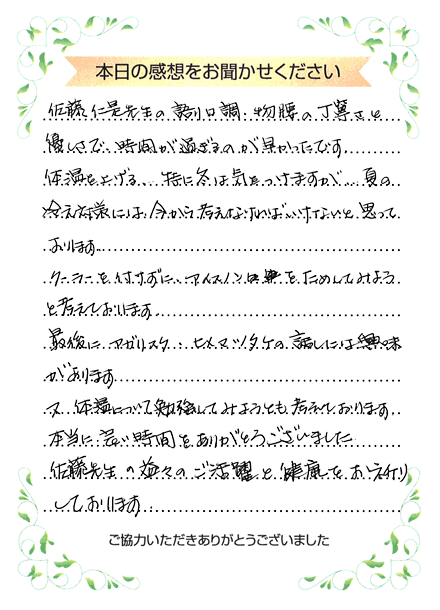 本日の感想をお聞かせください
佐藤 先生の語り口調、物腰の丁寧さと
優しさで、時間が過ぎるのが早かったです。
体温を上げる…特に冬は気をつけますが…夏の
冷え対策には、今から考えなければいけないと思って
おります。
クーラーを付けずに、アイスノン をためしてみよう
と考えております。
最後に アガリスク・ヒメマツタケの話しには興味
があります
又、体温について勉強してみようとも考えております。
本当に 良い時間をありがとうございました
佐藤先生の益々のご活躍と健康をお祈り
しております。
ご協力いただきありがとうございました